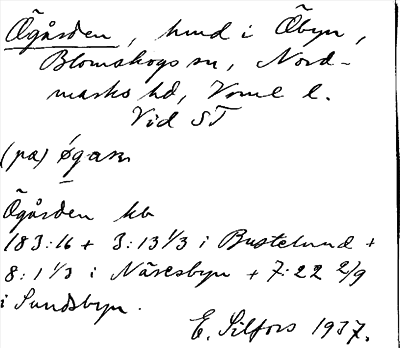 Ögården, hmd i Öbyn,
Blomskogs sn, Nord-
marks hd, Vrml l.
Vid ST
(pa) øgaɹn
Ögården kb
183:16 + 3:13 1/3 i Bustelund +
8:1 1/3 i Näresbyn + 7:22 2/9
i Sundsbyn.
E. Silfors 1937.